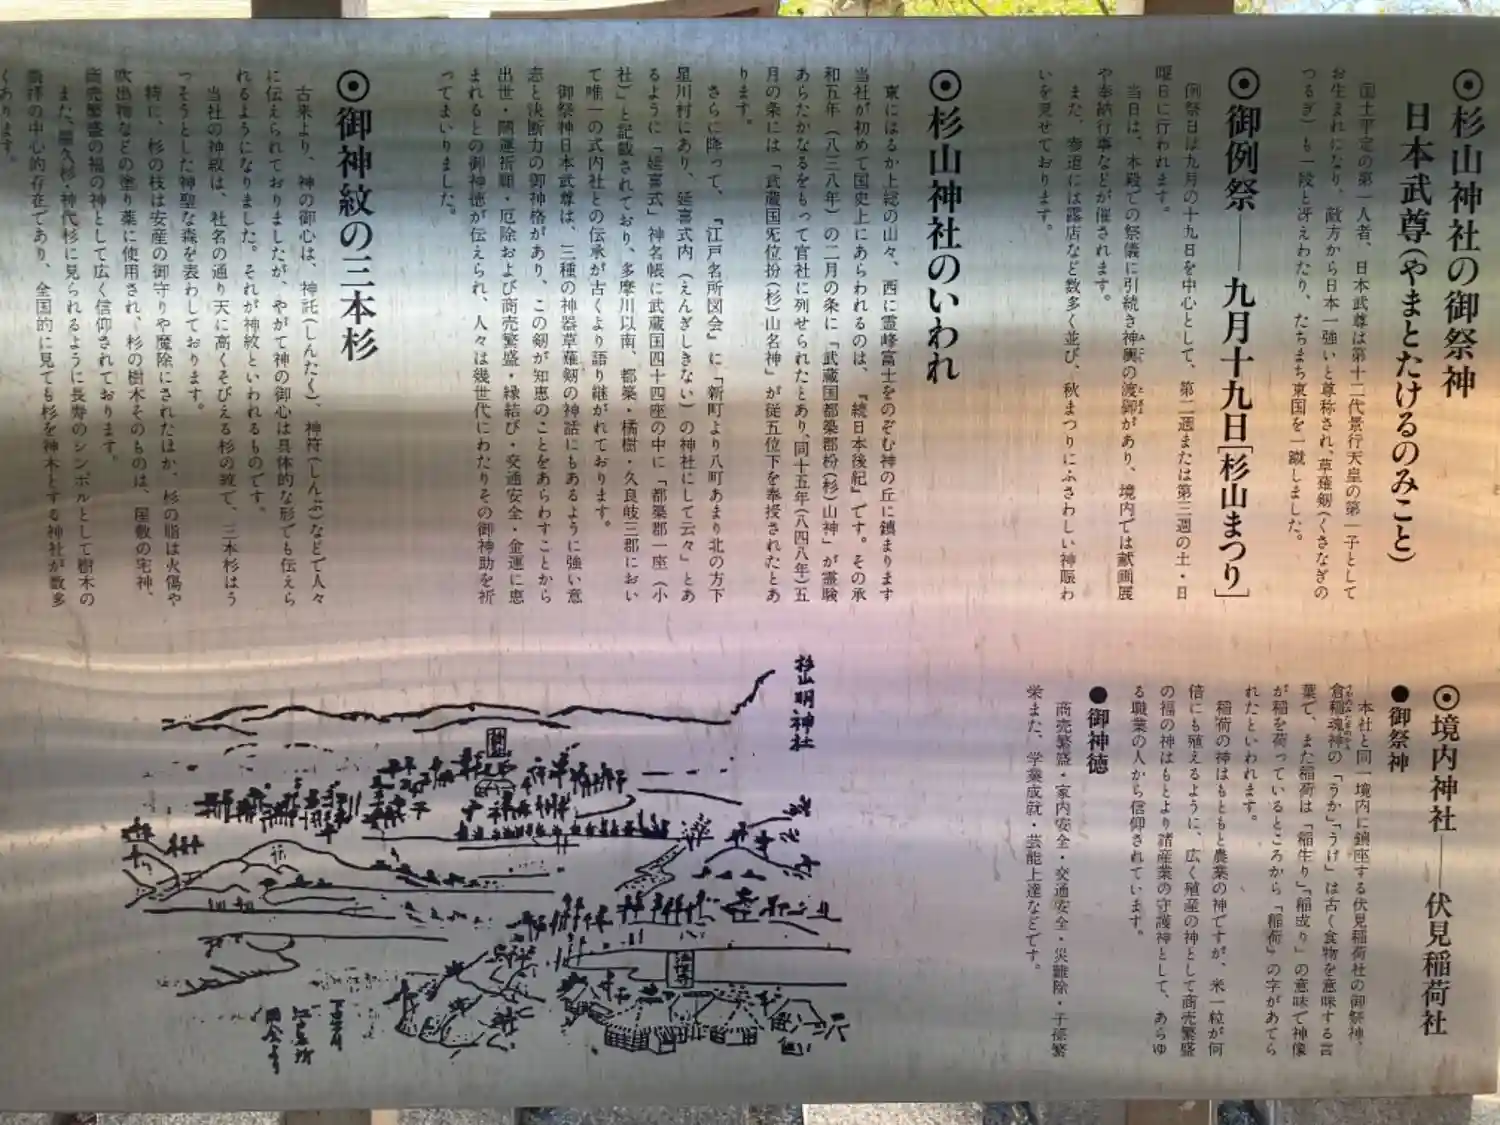 杉山神社の御祭神
日本武尊(やまとたけるのみこと)
国土平定の第一人者、日本武尊は第十二代景行天皇の第一子として
お生まれになり、敵方から日本一強いと尊称され、草薙剱(くさなぎの
つるぎ)も一段と冴えわたり、たちまち東国を一蹴しました。
御例祭——九月十九日[杉山まつり]
例祭日は九月の十九日を中心として、第二週または第三週の土・日
曜日に行われます。
当日は、本殿での祭儀に引続き神輿の渡御があり、境内では献画展
や奉納行事などが催されます。
また、参道には露店など数多く並び、秋まつりにふさわしい神賑わ
いを見せております。
杉山神社のいわれ
東にはるか上総の山々、西に霊峰富士をのぞむ神の丘に鎮まります
当社が初めて国史上にあらわれるのは、『続日本後紀』です。その承
和五年(八三八年)の二月の条に「武蔵国都築郡枌(杉)山神」が霊験
あらたかなるをもって官社に列せられたとあり、同十五年(八四八年)五
月の条には「武蔵国旡位枌(杉)山名神」が従五位下を奉授されたとあ
ります。
さらに降って、『江戸名所図会』に「新町より八町あまり北の方下
星川村にあり、延喜式内(えんぎしきない)の神社にして云々」とあ
るように「延喜式」神名帳に武蔵国四十四座の中に「都築郡一座(小
社)」と記載されており、多摩川以南、都築・橘樹・久良岐三郡におい
て唯一の式内社との伝承が古くより語り継がれております。
御祭神日本武尊は、三種の神器草薙剱の神話にもあるように強い意
志と決断力の御神格があり、この剱が知恵のことをあらわすことから
出世・開運祈願・厄除および商売繁盛・縁結び・交通安全・金運に恵
まれるとの御神徳が伝えられ、人々は幾世代にわたりその御神助を祈
ってまいりました。
御神紋の三本杉
古来より、神の御心は、神託(しんたく)、神符(しんぷ)などで人々
に伝えられておりましたが、やがて神の御心は具体的な形でも伝えら
れるようになりました。それが神紋といわれるものです。
当社の神紋は、社名の通り天に高くそびえる杉の紋で、三本杉はう
っそうとした神聖な森を表わしております。
特に、杉の枝は安産の御守りや魔除にされたほか、杉の脂は火傷や
吹出物などの塗り薬に使用され、杉の樹木そのものは、屋敷の宅神、
商売繁盛の福の神として広く信仰されております。
また、屋久杉・神代杉に見られるように長寿のシンボルとして樹木の
の中心的存在であり、全国的に見ても杉を神木とする神社が数多
くあります。
境内神社——伏見稲荷社
御祭神
本社と同一境内に鎮座する伏見稲荷社の御祭神、
倉稲魂神の「うか」「うけ」は古く食物を意味する言
葉で、また稲荷は「稲生り」「稲成り」の意味で神像
が稲を荷っているところから「稲荷」の字があてら
れたといわれます。
稲荷の神はもともと農業の神ですが、米一粒が何
倍にも殖えるように、広く殖産の神として商売繁盛
の福の神はもとより諸産業の守護神として、あらゆ
る職業の人から信仰されています。
御神徳
商売繁盛・家内安全・交通安全・災難除・子孫繁
栄また、学業成就・芸能上達などです。
杉山明神社